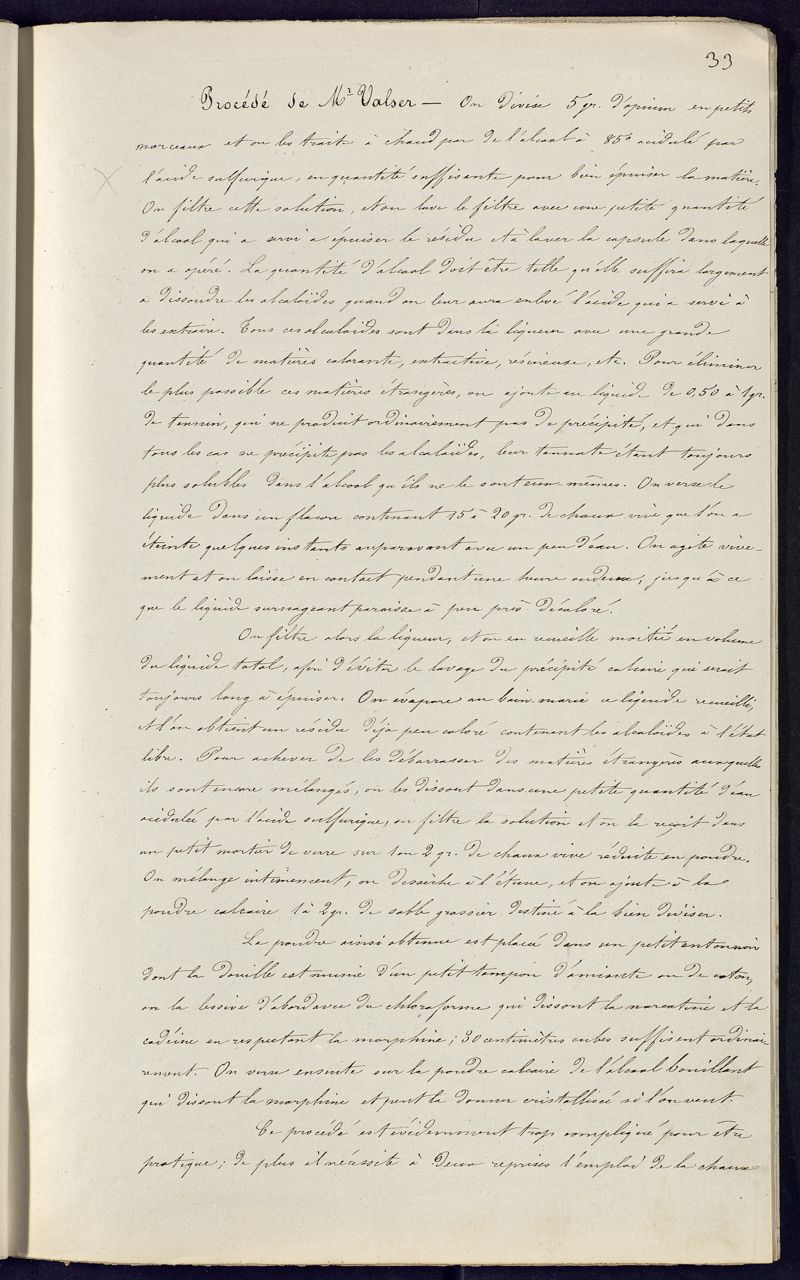 33
Procédé de Mr Valser — On divise 5 gr. d'opium en petits
morceaux et on les trait à chaud par de l'alcool à 85° acidulé par
l'acide sulfurique, en quantité suffisante pour bien épuiser la matière.
On filtre cette solution, et on lave le filtre avec une petite quantité
d'alcool qui a servi a épuiser le résidu et à laver la capsule dans laquelle
on a opéré. La quantité d'alcool doit être telle qu'elle suffira largement
a dissoudre les alcaloïdes quand on leur aura enlevé l'acide qui a servi à
les extraire. Tous ces alcaloïdes sont dans la liqueur avec une grande
quantité de matières colorante, extractive, résineuse, etc. Pour éliminer
le plus possible ces matières étrangères, on ajoute au liquide de 0,50 à 1 gr.
de tannin, qui ne produit ordinairement pas de précipité, et qui dans
tous les cas ne précipite pas les alcaloïdes, leur tannate étant toujours
plus solubles dans l'alcool qu'ils ne le sont eux mêmes. On verse le
liquide dans un flacon contenant 15 à 20 gr. de chaux vive que l'on a
éteinte quelques instants auparavant avec un peu d'eau. On agite vive-
ment et on laisse en contact pendant une heure ou deux, jusqu'à ce
que le liquide surnageant paraisse à peu près décoloré.
On filtre alors la liqueur, et on en recueille moitié en volume
du liquide total, afin d'éviter le lavage du précipité calcaire qui serait
toujours long à épuiser. On évapore au bain-marie ce liquide recueilli,
et l'on obtient un résidu déja peu coloré contenant les alcaloïdes à l'état
libre. Pour achever de les débarrasser des matières étrangères auxquelles
ils sont encore mélangés, on les dissout dans une petite quantité d'eau
acidulée par l'acide sulfurique, on filtre la solution et on la reçoit dans
un petit mortier de verre sur 1 ou 2 gr. de chaux vive réduite en poudre.
On mélange intimement, on dessèche à l'étuve, et on ajoute à la
poudre calcaire 1 à 2 gr. de sable grossier destiné à la bien diviser.
La poudre ainsi obtenue est placée dans un petit entonnoir
dont la douille est munie d'un petit tampon d'amiante ou de coton,
on la lessive d'abord avec du chloroforme qui dissout la narcotine et la
codéine en respectant la morphine; 30 centimètres cubes suffisent ordinai-
rement. On verse ensuite sur la poudre calcaire de l'alcool bouillant
qui dissout la morphine et peut la donner cristallisée si l'on veut.
Ce procédé est évidemment trop compliqué pour être
pratique; de plus il nécessite à deux reprises l'emploi de la chaux